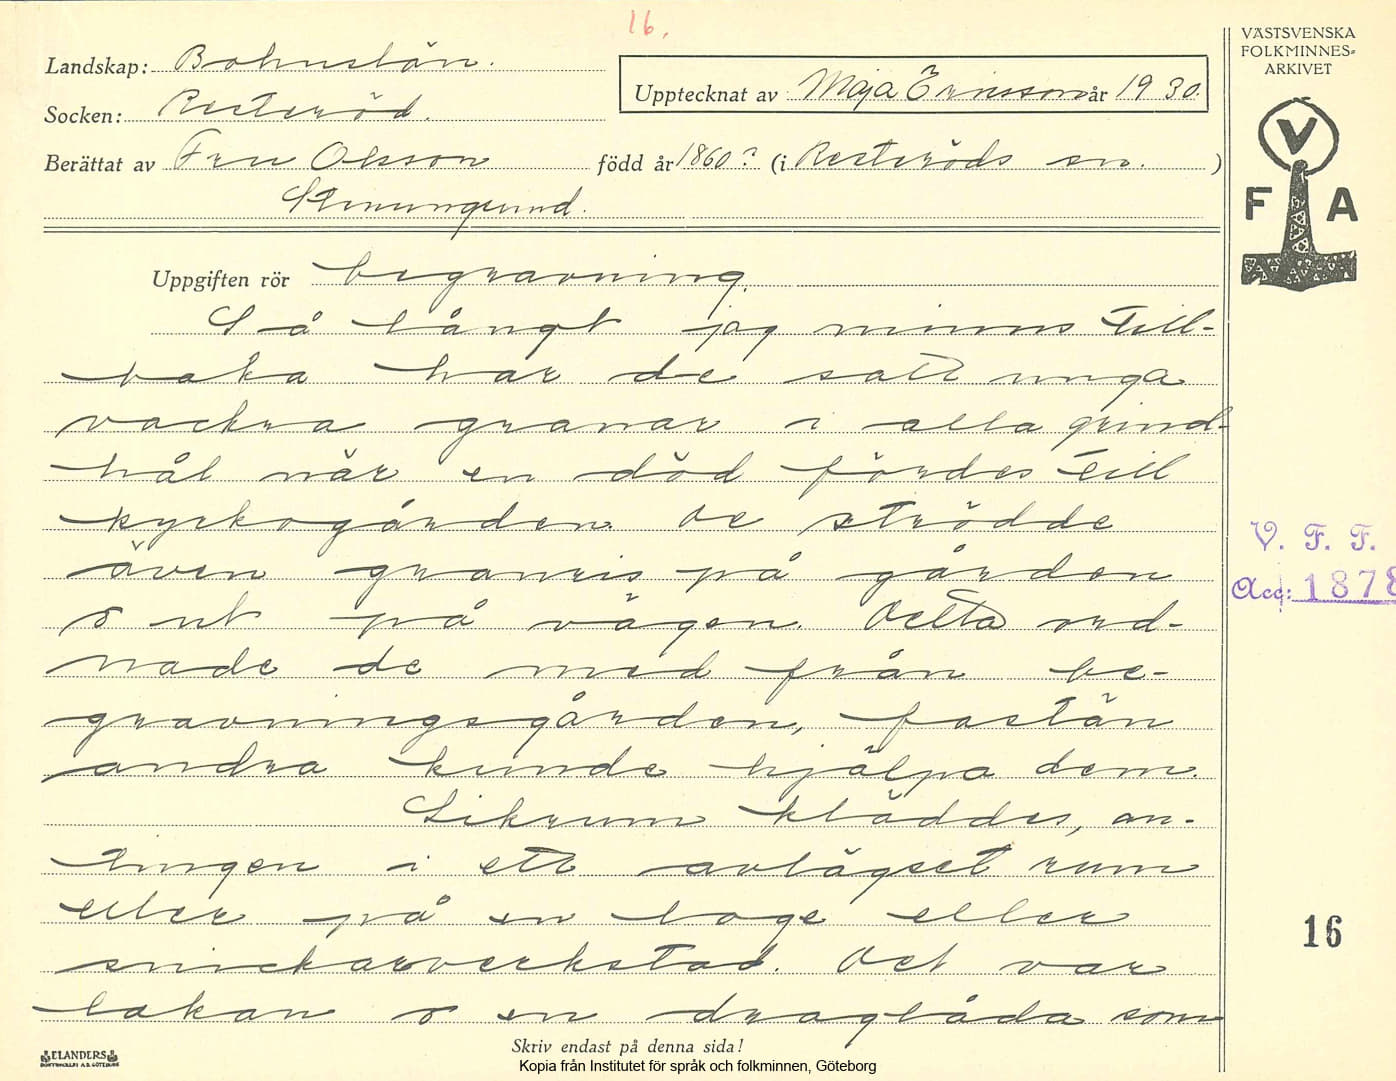 16.
Landskap: Bohuslän.
Socken: Resteröd.
Upptecknat av Maja Ericsson år 1930.
Berättat av Fru Olsson född år 1860? (i Resteröds sn. )
Stenungsund.
VÄSTSVENSKA
FOLKMINNES=
ARKIVET
V
F A
Uppgiften rör begravning.
Så långt jag minns till-
baka har de satt unga
vackra granar i alla grind-
hål när en död fördes till
kyrkogården. De strödde
även granris på gården
o ut på vägen. Detta ord-
nade de med från be-
gravningsgården, fastän
andra kunde hjälpa dem.
Likrum kläddes, an-
tingen i ett avlägset rum
eller på en loge eller
snickarverkstad. Det var
lakan o en draglåda som
V. F. F.
Acc: 1878
16
ELANDERS
BOKTRYCKERI A.B. GÖTEBORG
Skriv endast på denna sida!
Kopia från Institutet för språk och folkminnen, Göteborg